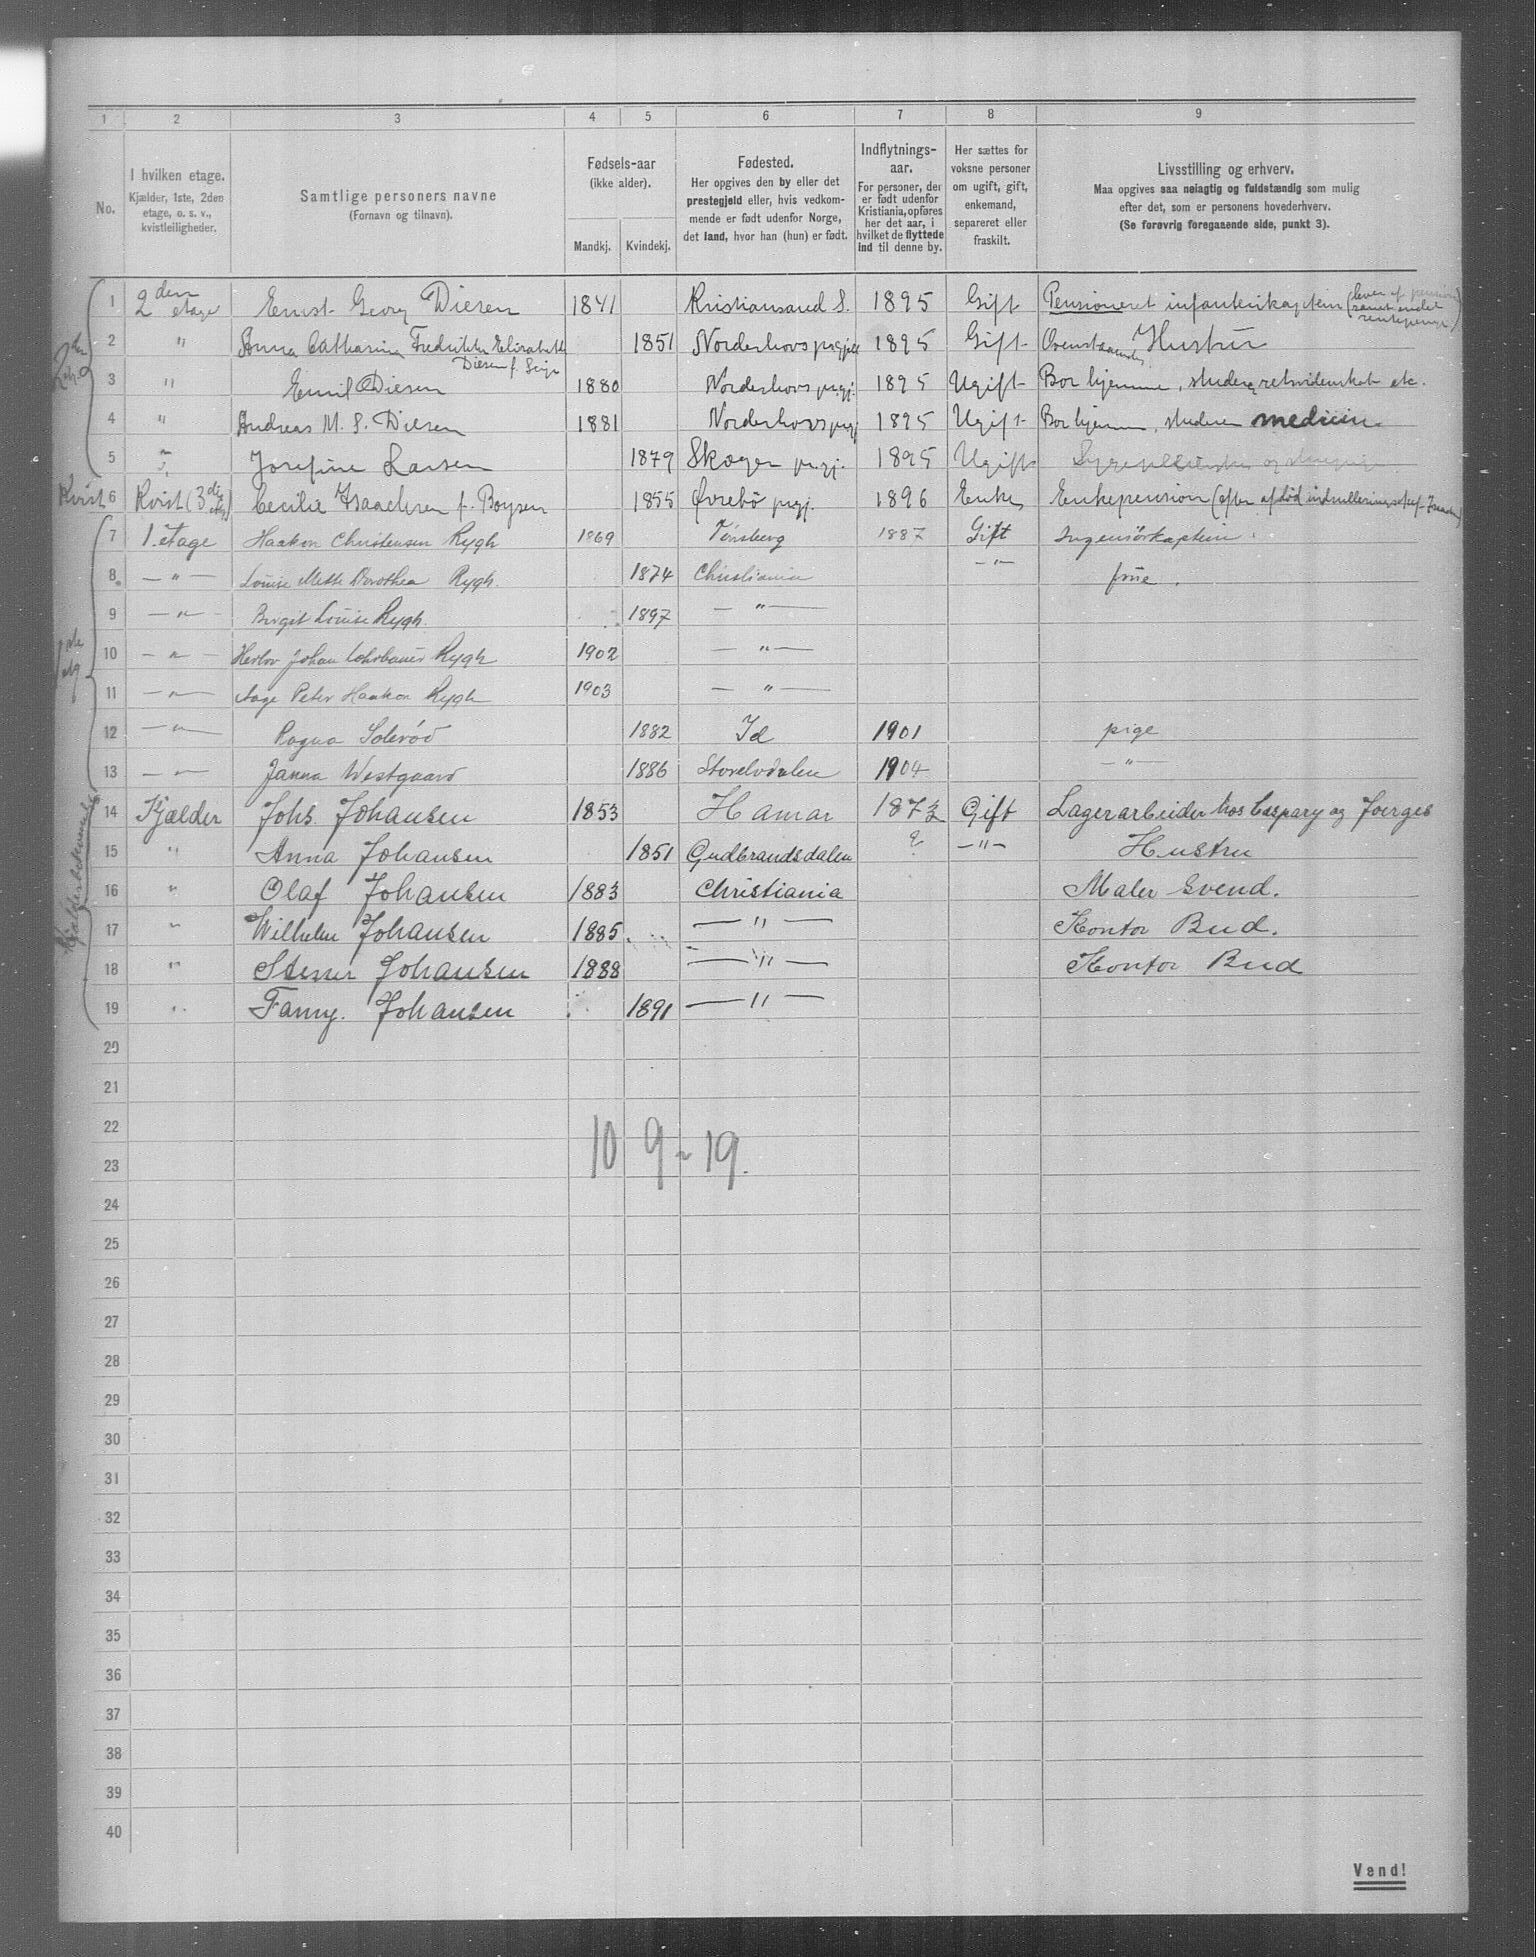 1 2 3 4 5 6 7 8 9
No.
I hvilken etage.
Kjælder, 1ste, 2den
etage, o. s. v.,
kvistleiligheder.
Samtlige personers navne
(Fornavn og tilnavn).
Fødsels-aar
(ikke alder).
Mandkj. Kvindekj.
Fødested.
Her opgives den by eller det
prestegjeld eller, hvis vedkom-
mende er født udenfor Norge,
det land, hvor han (hun) er født.
Indflytnings-
aar.
For personer, der
er født udenfor
Kristiania, opføres
her det aar, i
hvilket de flyttede
ind til denne by.
Her sættes for
voksne personer
om ugift, gift,
enkemand,
separeret eller
fraskilt.
Livsstilling og erhverv.
Maa opgives saa nøiagtig og fuldstændig som mulig
efter det, som er personens hovederhverv.
(Se forøvrig foregaaende side, punkt 3).
1 2den etage Ernst Georg Diesen 1841 Kristiansand S. 1895 Gift Pensioneret infanterikaptein (lever af pension samt endel rentepenge)
2 " Anna Catharina Fredrikke Elisabeth Diesen f. 1851 Norderhovs prgjld 1895 Gift Ovenstaaendes Hustru
3 " Emil Diesen 1880 Norderhovs prgj. 1895 Ugift Bor hjemme, studerer retsvidenskab etc.
4 " Andreas M. S. Diesen 1881 Norderhovs prgj 1895 Ugift Bor hjemme, studerer medicin.
5 " Josefine Larsen 1879 Skoger prgj. 1895 Ugift og
Kvist 6 Kvist (3die etg) Cecilie Isaachsen f. Boysen 1855 Øvrebø prgj. 1896 Enke Enkepension (efter afdød indrulleringschef
7 1. etage Haakon Christensen Rygh 1869 Tønsberg 1887 Gift Ingeniørkaptein.
8 — " — Louise Mette Dorothea Rygh. 1874 Christiania — " — frue.
9 — " — Birgit Louise Rygh. 1897 — " —
10 — " — Herlov Johan Rygh 1902 — " —
11 — " — Aage Peter Haakon Rygh 1903 — " —
12 — " — Ragna Solerød 1882 Id 1901 pige
13 — " — Janna Westgaard 1886 Storelvdalen 1904 — " —
14 Kjælder Johs. Johansen 1853 Hamar 1873 Gift Lagerarbeider hos Caspary og Joerges
15 " Anna Johansen 1851 Gudbrandsdalen ? — " — Hustru
16 " Olaf Johansen 1883 Christiania Maler Svend.
17 " Wilhelm Johansen 1885. — " — Kontor Bud.
18 " Stener Johansen 1888 — " — Kontor Bud
19 " Fanny. Johansen 1891 — " —
20
21
22
10 9 - 19.
23
24
25
26
27
28
29
30
31
32
33
34
35
36
37
38
39
40
Vend!